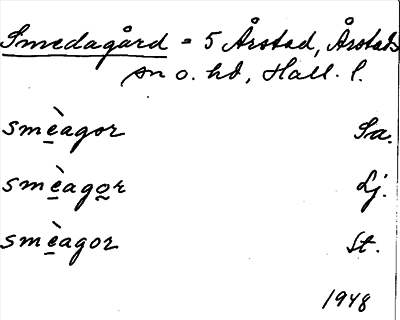 Smedagård = 5 Årstad, Årstads
sn o. hd, Hall. l.
smèagor Sa.
smèagor Lj.
smèagor St.
1948